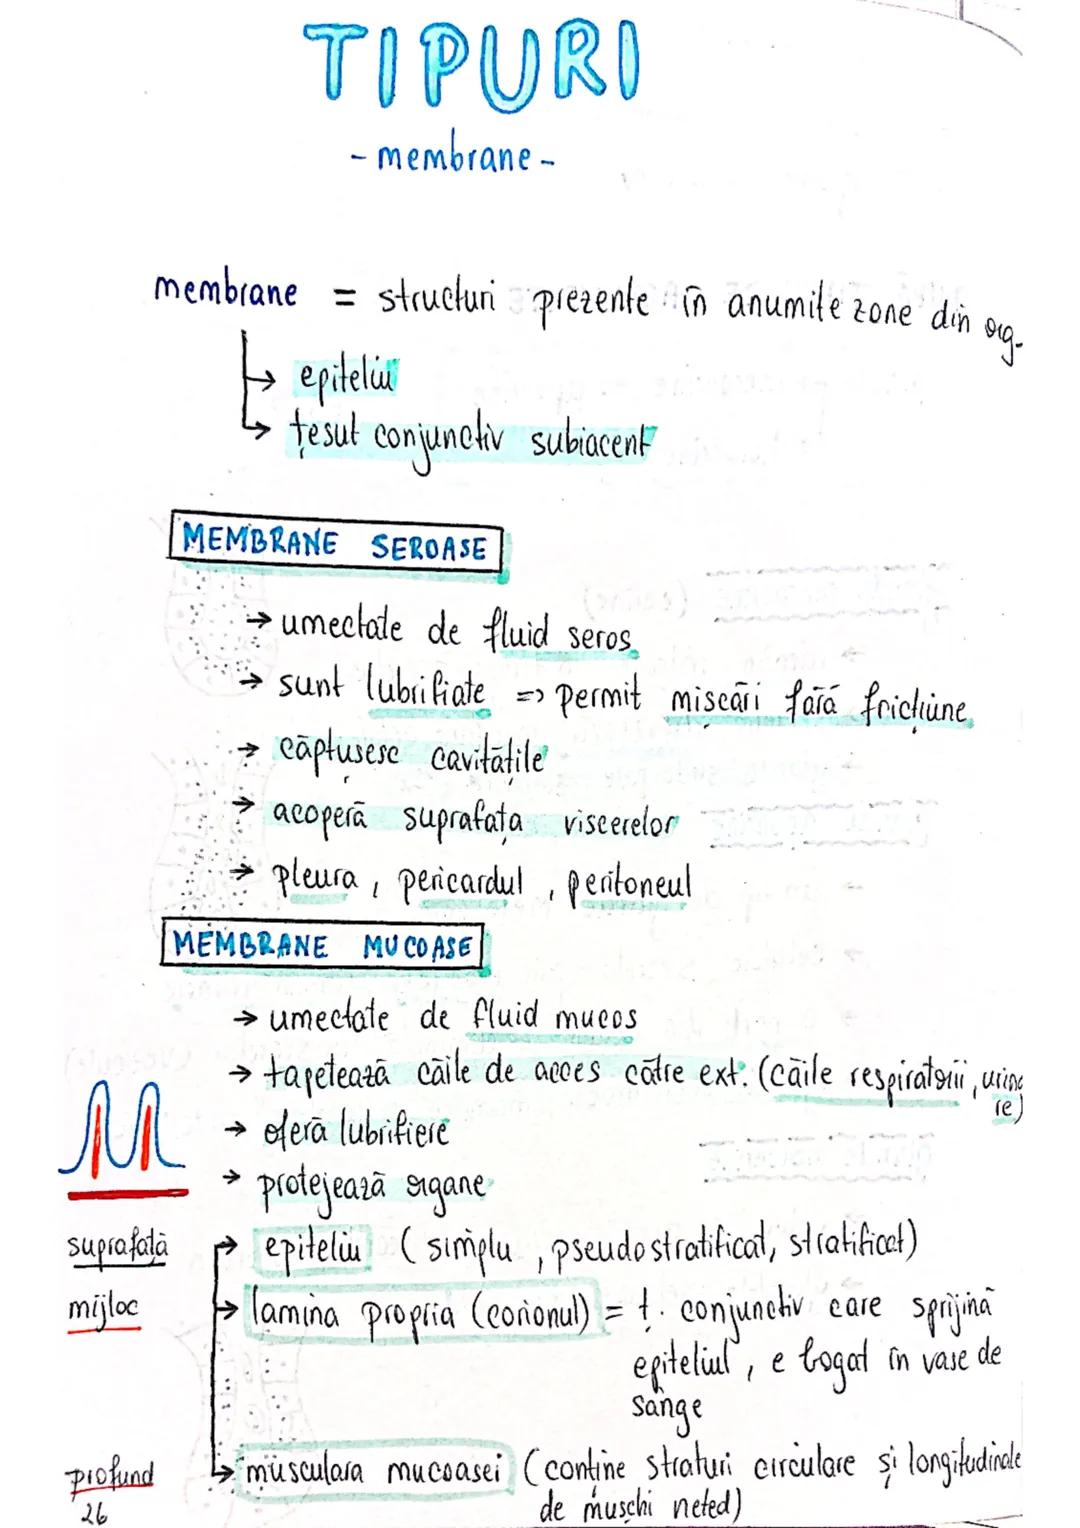 TIPURI
- membrane -
membrane = structuri prezente în anumite zone din org.
→ epiteliu
→ țesut conjunctiv subiacent
MEMBRANE SEROASE
→ umectate de fluid seros
→ sunt lubrifiate => permit mișcări fără fricțiune
→ căptușesc cavitățile
→ acoperă suprafața viscerelor
→ pleura, pericardul, peritoneul
MEMBRANE MUCOASE
→ umectate de fluid mucos
→ tapetează căile de acces către ext. (căile respiratorii, urina
re)
→ oferă lubrifiere
→ protejează organe
suprafață → epiteliu (simplu, pseudostratificat, stratificat)
mijloc → lamina propria (corionul) = ț. conjunctiv care sprijină
epiteliul, e bogat în vase de
sânge
profund → musculara mucoasei (conține straturi circulare și longitudinale
26 de mușchi neted)